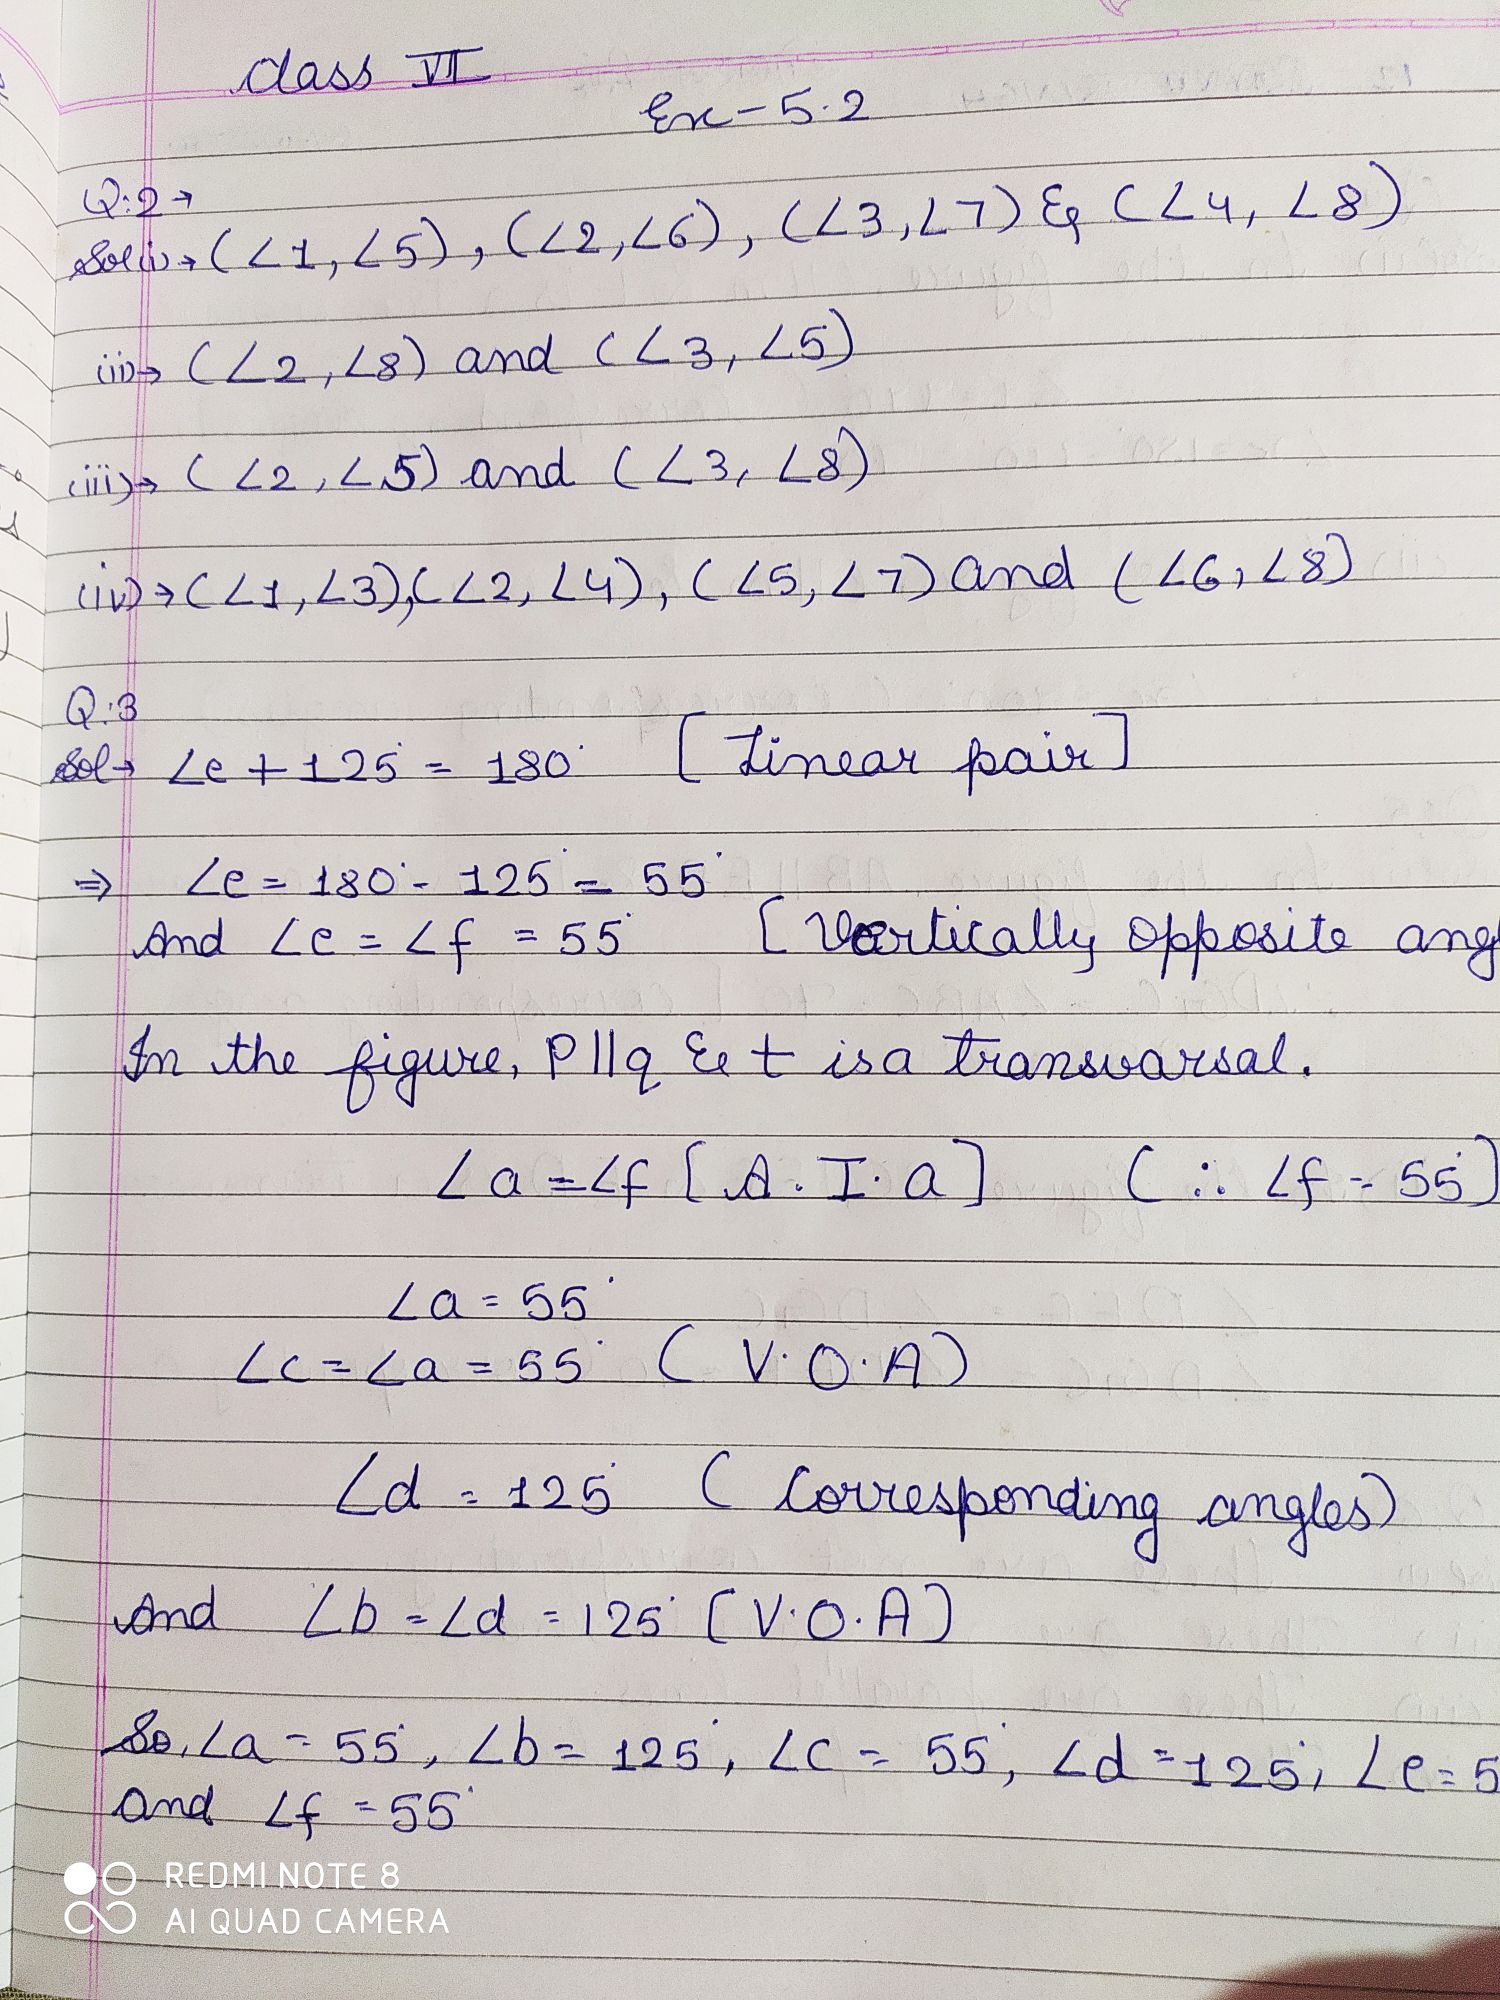 class VII
Ex-5.2
Q:2→
Sol(i)→ (∠1,∠5), (∠2,∠6), (∠3,∠7) & (∠4, ∠8)
(ii)→ (∠2,∠8) and (∠3, ∠5)
(iii)→ (∠2, ∠5) and (∠3, ∠8)
(iv)→ (∠1,∠3),(∠2, ∠4), (∠5, ∠7) and (∠6, ∠8)
Q:3
Sol→ ∠e + 125° = 180° [Linear pair]
⇒ ∠e = 180° - 125° = 55°
And ∠e = ∠f = 55° [Vertically opposite ang
In the figure, P||q & t is a transvarsal.
∠a = ∠f [A.I.a] (∴ ∠f = 55°)
∠a = 55°
∠c = ∠a = 55° (V.O.A)
∠d = 125° (Corresponding angles)
And ∠b = ∠d = 125° [V.O.A)
So, ∠a = 55°, ∠b = 125°, ∠c = 55°, ∠d = 125°, ∠e = 5
and ∠f = 55°
REDMI NOTE 8
AI QUAD CAMERA